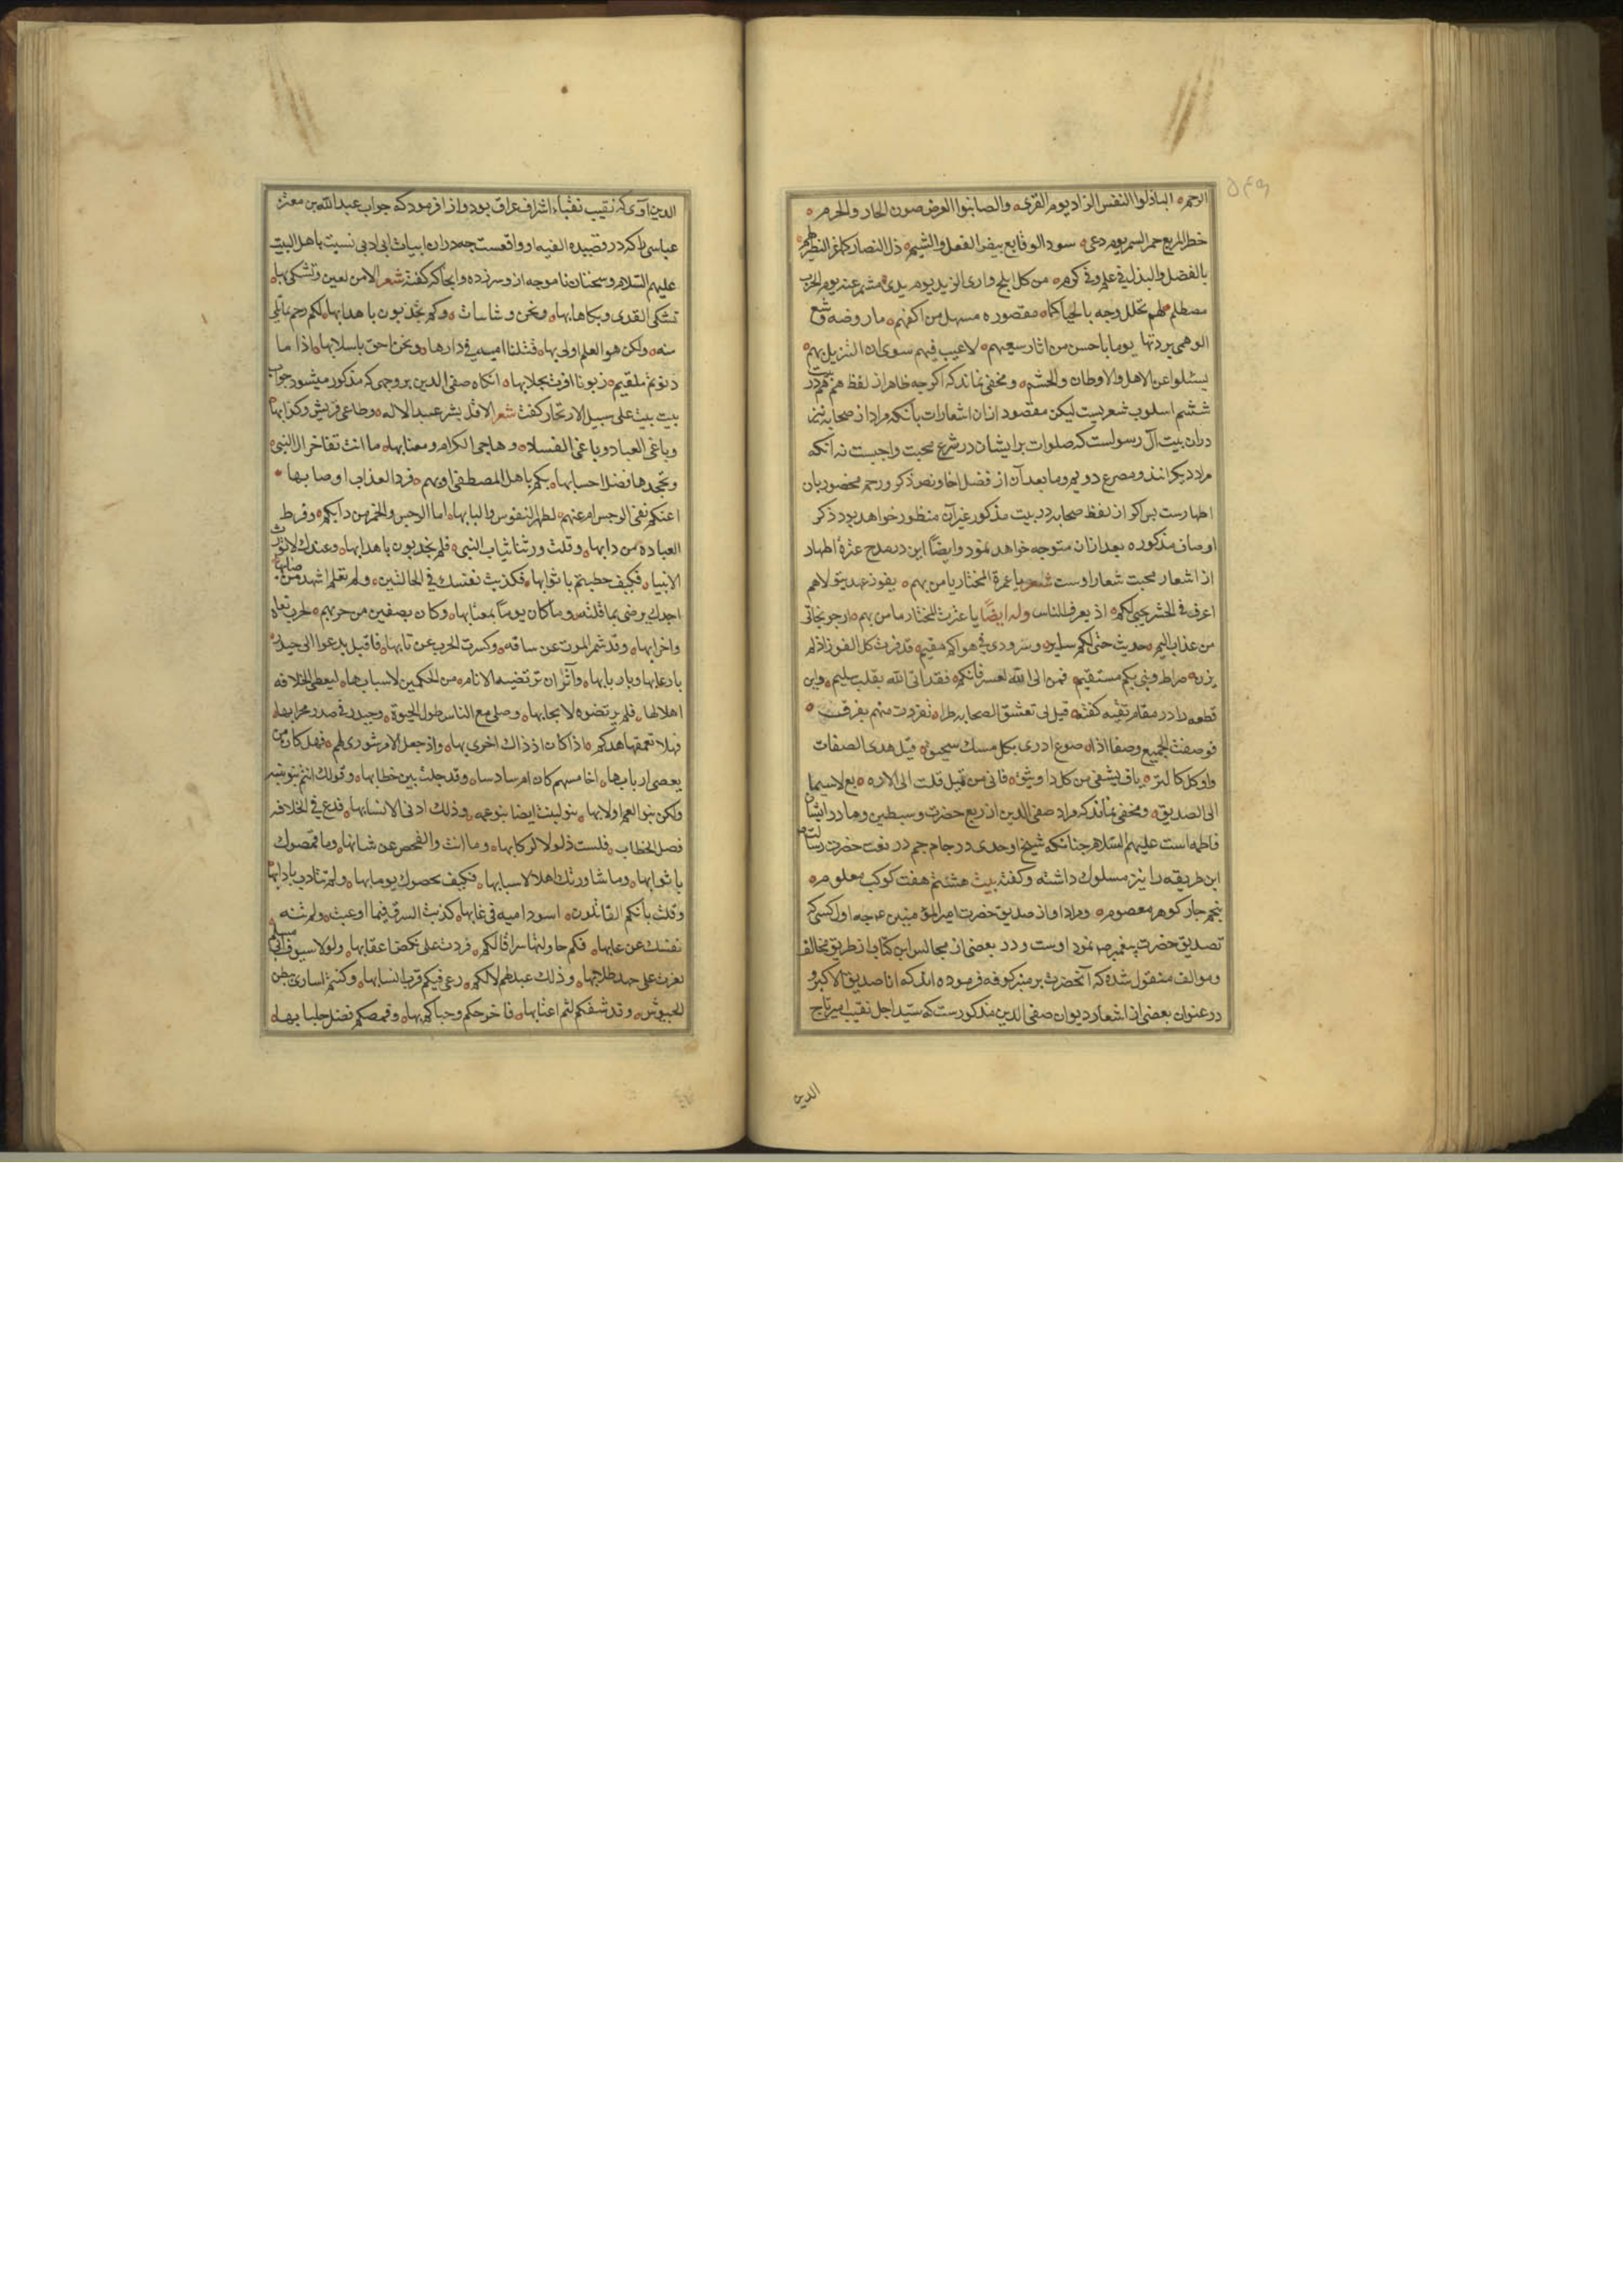 الرحم الباذلوا النفس الزاد يوم القری والصاینوا العرض صون الجار والحرم
خضر المربع حمر السمر يوم وغی سود الوقایع بیض الفعل والشیم ذل النضار کما عز النظیر لهم
بالفضل والبذل فی علم وفی کرم من کل ابلج واری الزند یوم یدی مشمر عنه یوم الحرب
مصطلم لهم تهلل وجه بالحیا کما مقصوره مستهل من اکفهم ما روضه وشع
الوهمی بردتها یوما باحسن من اثار سعیهم لا عیب فیهم سوی ان النزیل بهم
یسئلوا عن الاهل والاوطان والحشم و مخفی نماند که اکرچه ظاهر از لفظ هم هم در بیت
ششم اسلوب شعریست لیکن مقصود ازان اشعارات بآنکه مراد از صحابه نیز
دران بیت آل رسولست که صلوات بر ایشان در شرع محبت واجبست نه آنکه
مراد دیکرانند و مصرع دویم وما بعد آن از فضل اخا ونص ذکر ورحم مخصور بان
اظهارست پس اکر از لفظ صحابه در بیت مذکور غیر آن منظور خواهد بود ذکر
اوصاف مذکوره بعد ازان متوجه خواهد نمود وایضًا این در مدح عترة اطهار
از اشعار محبت شعار اوست شعر یا عترة المختار یا من بهم یفوز عبد یتولاهم
اعرف فی الحشر بحبی لکم اذ یعرف الناس وله ایضًا یا عترت المختار یا من بهم ارجو نجاتی
من عذاب الیم حدیث حبی لکم سایر وسر ودی فی هواکم مقیم قد فزت کل الفوز اذ لم
یزل صراط دینی بکم مستقیم فمن اتی الله بعرفانکم فقد اتی الله بقلب سلیم واین
قطعه را در مقام تقیه کفته قیل لی تعشق الصحابه طرا تفردت منهم بفرقت
فوصفت الجمیع وصفا اذا ضوع ادری بکل مسک سحیق قیل هذی الصفات
والکل کالتریاق یشفی من کل داء وثیق فالی من تمیل قلت الی الاربع لاسیما
الی الصدیق و مخفی نماند که مراد صفی الدین از ربع حضرت و سبطین و مادر ایشان
فاطمه است علیهم السلام چنانکه شیخ اوحدی در جام جم در نعت حضرت رسالت
این طریقه را نیز مسلوک داشته و کفته بیت هشتم هفت کوکب معلوم
پنجم چار کوهر معصوم ومراد او از صدیق حضرت امیر المؤمنین عهجه اول کسی که
تصدیق حضرت پیغمبر ص نمود اوست و در بعضی از مجالس این کتاب از طریق مخالف
وموالف منقول شده که آنحضرت بر منبر کوفه فرموده اند که انا صدیق الاکبر و
در عنوان بعضی از اشعار دیوان صفی الدین مذکورست که سیّد اجل نقیب امیر تاج
الدین
الدین آوی که نقیب نقباء اشراف عراق بود و از او فرمود که جواب عبدالله بن معتز
عباسی را که در قصیده الفیه او واقعست چه دران ابیات ابی ادبی نسبت باهل البیت
علیهم السلام وسخنان ناموجه از وسر زده وابجا که کفته شعر الا من لعین وتشکی بها
تشکی القذی وبکاها بها ونحن ورثنا ثیاب النبی وکم تجذبون باهدابها لکم رحم یا بنی
بنته ولکن بنو العم اولی بها قتلنا امیه فی دارها ونحن احق باسلابها اذا ما
دنوتم تلقیتم زبونا اقرت بجلابها انکاه صفی الدین بر وجهی که مذکور میشود جواب
بیت بیت علی سبیل الارتجال کفت شعر الا قل لشر عبید الاله وطاغی قریش وکذابها
وباغی العباد وباغی الفساد وهاجی الکرام ومغتابها ما انت تفاخر ال النبی
وتجحدها فضل احسابها بکم باهل المصطفی ام بهم فرد العداة باوصابها
اعنکم نفی الرجس ام عنهم لطهر النفوس والبابها اما الرجس والخمر من دابکم وفرط
العباده من دابها وقلت ورثنا ثیاب النبی فلم تجذبون باهدابها وعندک لا تورث
الانبیاء فکیف حظیتم باثوابها فکذبت نفسک فی الحالتین ولم تعلم الشهد من صابها
اجدک یرضی بما قلته وما کان یوماً بمرتابها وکان بصفین من حزبهم لحرب بغاة
واحزابها وقد شمر الموت عن ساقه وکسرت الحرب عن نابها فاقبل یدعوا الی حیدر
بارعابها وبارهابها وآثر ان ترتضیه الانام من الحکمین لاسبابها لیعطی الخلافه
اهلا لها فلم یرتضوه لایجابها وصلی مع الناس طول الحیوة وحیدر فی صدر محرابها
فهلا تقمصها جدکم اذا کان اذ ذاک اخری بها واذ جعل الامر شوری لهم فهل کان من
بعض اربابها اخامسهم کان ام سادسا وقد جلیت بین خطابها وقولک انتم بنو بنته
ولکن بنو العم اولی بها بنو البنت ایضا بنو عمه وذلک ادنی لانسابها فدع فی الخلافه
فصل الخطاب فلیست ذلولا لرکابها وما انت والفحص عن شانها وما قمصوک
باثوابها وما شاورتک اهلا لاسبابها فکیف یخصوک یوما بها ولم تتادب بادابها
وقلت بانکم القاتلون اسود امیه فی غابها کذبت واسرفت فیما ادعیت ولم تنه
نفسک عن عابها فکم حاولتها سراة لکم فردت علی نکص اعقابها ولولا سیوف ابی مسلم
لعزت علی جهد طلابها وذلک عبد لهم لا لکم رعی فیکم قرب انسابها وکنتم اساری ببطن
الحبوس وقد شفکم لثم اعتابها فاخرجکم وحباکم بها وقمصکم فضل جلبابها